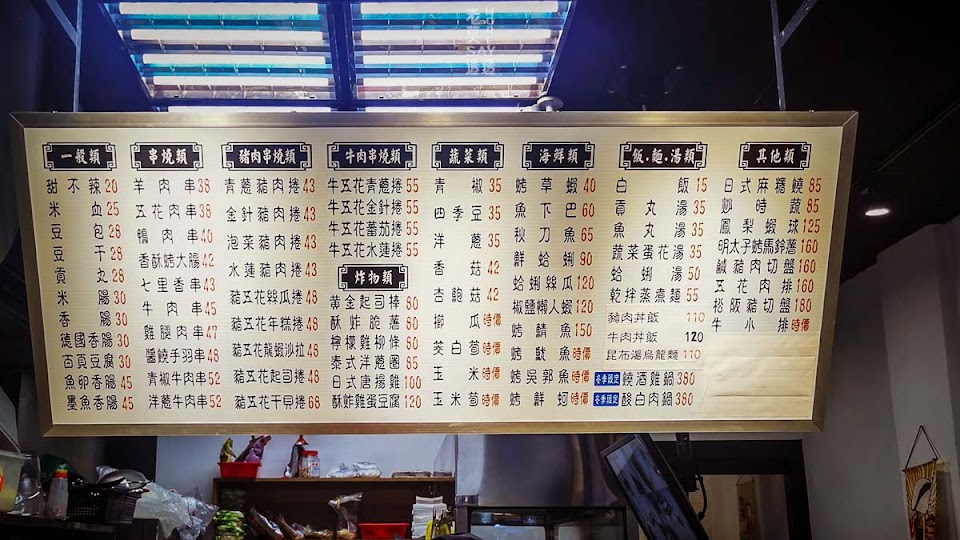 一般類
甜不辣20
米血25
豆包28
豆干28
貢丸28
米腸30
香腸30
德國香腸30
百頁豆腐30
魚卵香腸45
墨魚香腸45
串燒類
羊肉串38
五花肉串38
鴨肉串40
香酥烤大腸42
七里香串43
牛肉串45
雞腿肉串45
醬燒手羽串48
青椒牛肉串52
洋蔥牛肉串52
豬肉串燒類
青蔥豬肉捲43
金針豬肉捲43
泡菜豬肉捲43
水蓮豬肉捲43
豬五花絲瓜捲48
豬五花年糕捲48
豬五花龍蝦沙拉48
豬五花起司捲48
豬五花干貝捲68
牛肉串燒類
牛五花青蔥捲55
牛五花金針捲55
牛五花蕃茄捲55
牛五花水蓮捲55
炸物類
黃金起司棒80
酥炸脆薯80
檸檬雞柳條80
泰式洋蔥圈85
日式唐揚雞100
酥炸雞蛋豆腐120
蔬菜類
青椒35
四季豆35
洋蔥35
香菇42
杏鮑菇42
櫛瓜時價
茭白筍時價
玉米時價
玉米筍時價
海鮮類
烤草蝦40
魚下巴60
秋刀魚65
鮮蛤蜊90
蛤蜊絲瓜120
椒鹽懶人蝦120
烤鯖魚150
烤魷魚時價
烤吳郭魚時價
烤鮮蚵時價
飯.麵.湯類
白飯15
貢丸湯35
魚丸湯35
蔬菜蛋花湯35
蛤蜊湯50
乾拌蒸煮麵55
豬肉丼飯110
牛肉丼飯120
昆布湯烏龍麵110
冬季限定 燒酒雞鍋380
冬季限定 酸白肉鍋380
其他類
日式麻糬燒85
炒時蔬85
鳳梨蝦球125
明太子烤馬鈴薯160
鹹豬肉切盤160
五花肉排160
松阪豬切盤180
牛小排時價